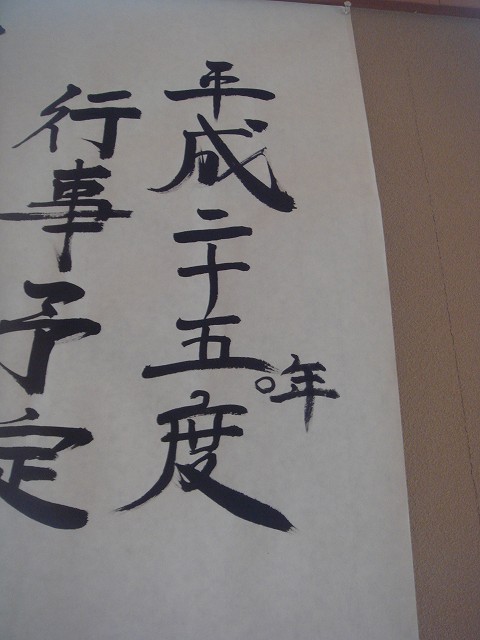 平成二十五。年度
行事予定